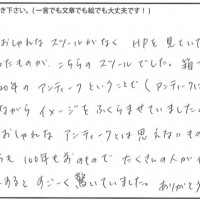 き下さい。(一言でも文章でも絵でも大丈夫です!)
おしゃれな スツールがなく HPを見ていて
たものが、こちらの スツールでした。箱
00年の アンティークということで (アンティークに
ながら イメージを ふくらませていました。
おしゃれな アンティークとは 思えないもの
も 100年も 前のもので たくさんの人が
すると すごーく 驚いていました。ありがとう